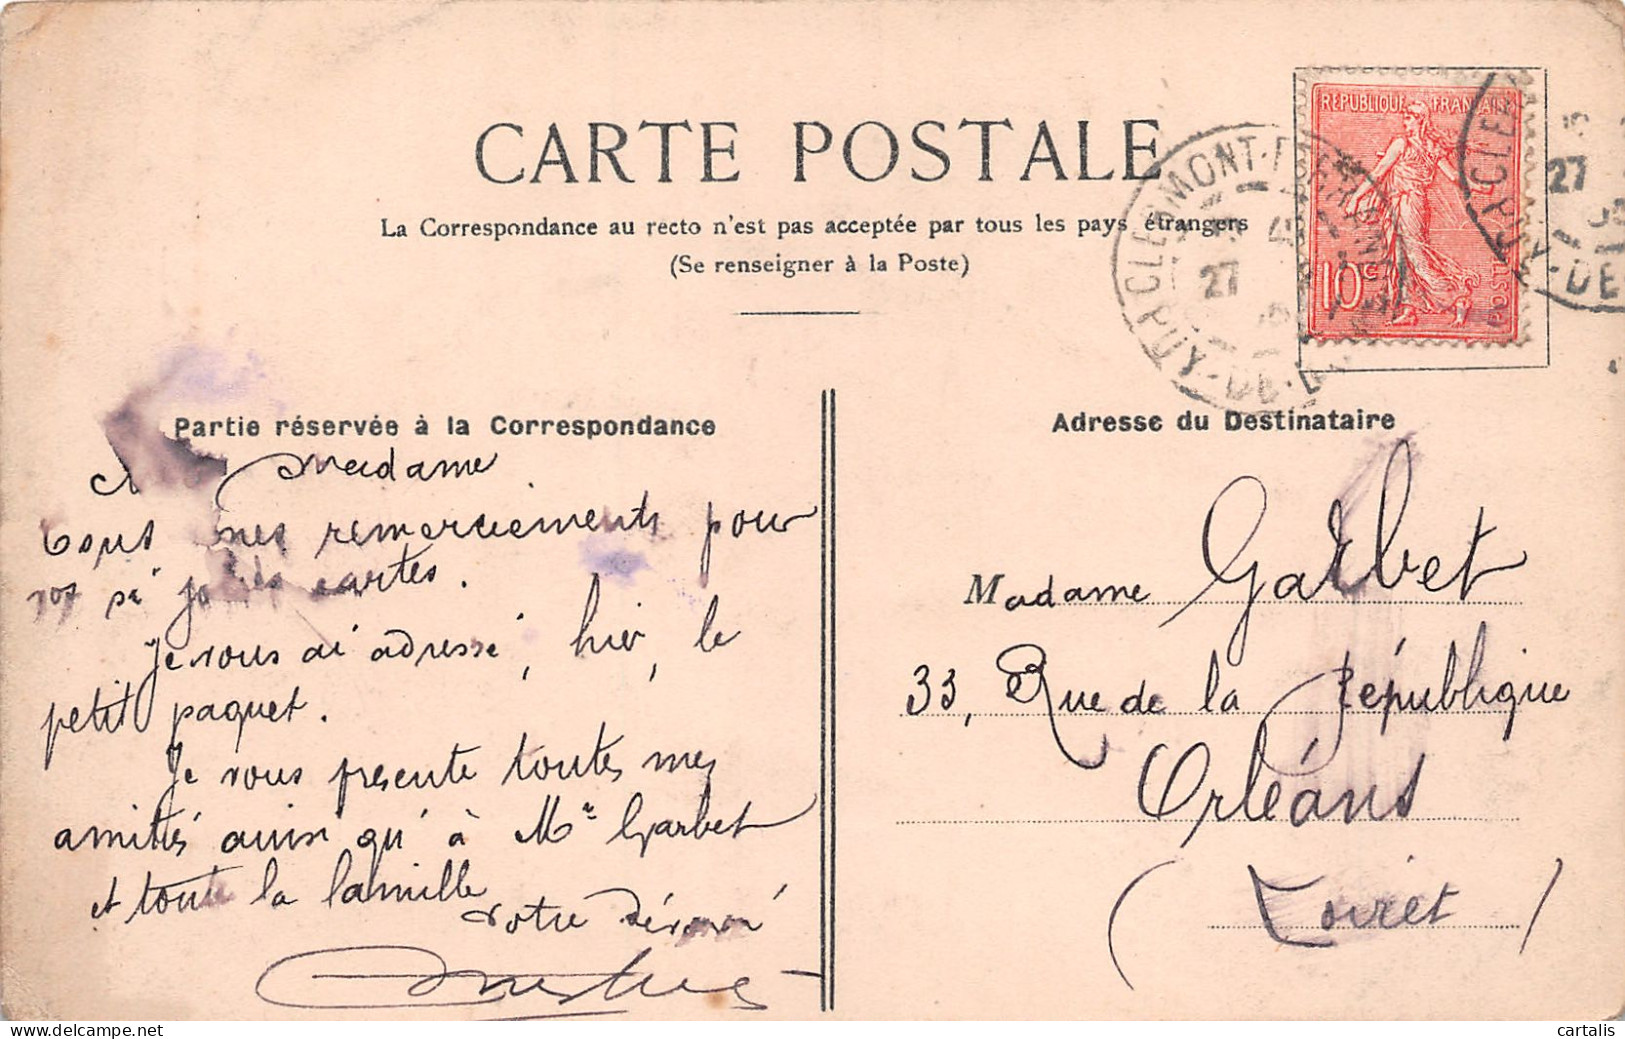 CARTE POSTALE
La Correspondance au recto n'est pas acceptée par tous les pays étrangers
(Se renseigner à la Poste)
RÉPUBLIQUE FRANÇAISE
10c
POSTES
CLERMONT-FERRAND
27
PUY-DE-DOME
CLE
27
PUY-DE
Partie réservée à la Correspondance
Madame
Tous mes remerciements pour
vos si jolies cartes.
Je vous ai adressé, hier, le
petit paquet.
Je vous présente toutes mes
amitiés ainsi qu'à Mr Garbet
et toute la famille
Votre dévoué
Adresse du Destinataire
Madame Garbet
33, Rue de la République
Orléans
(Loiret)
cartalis